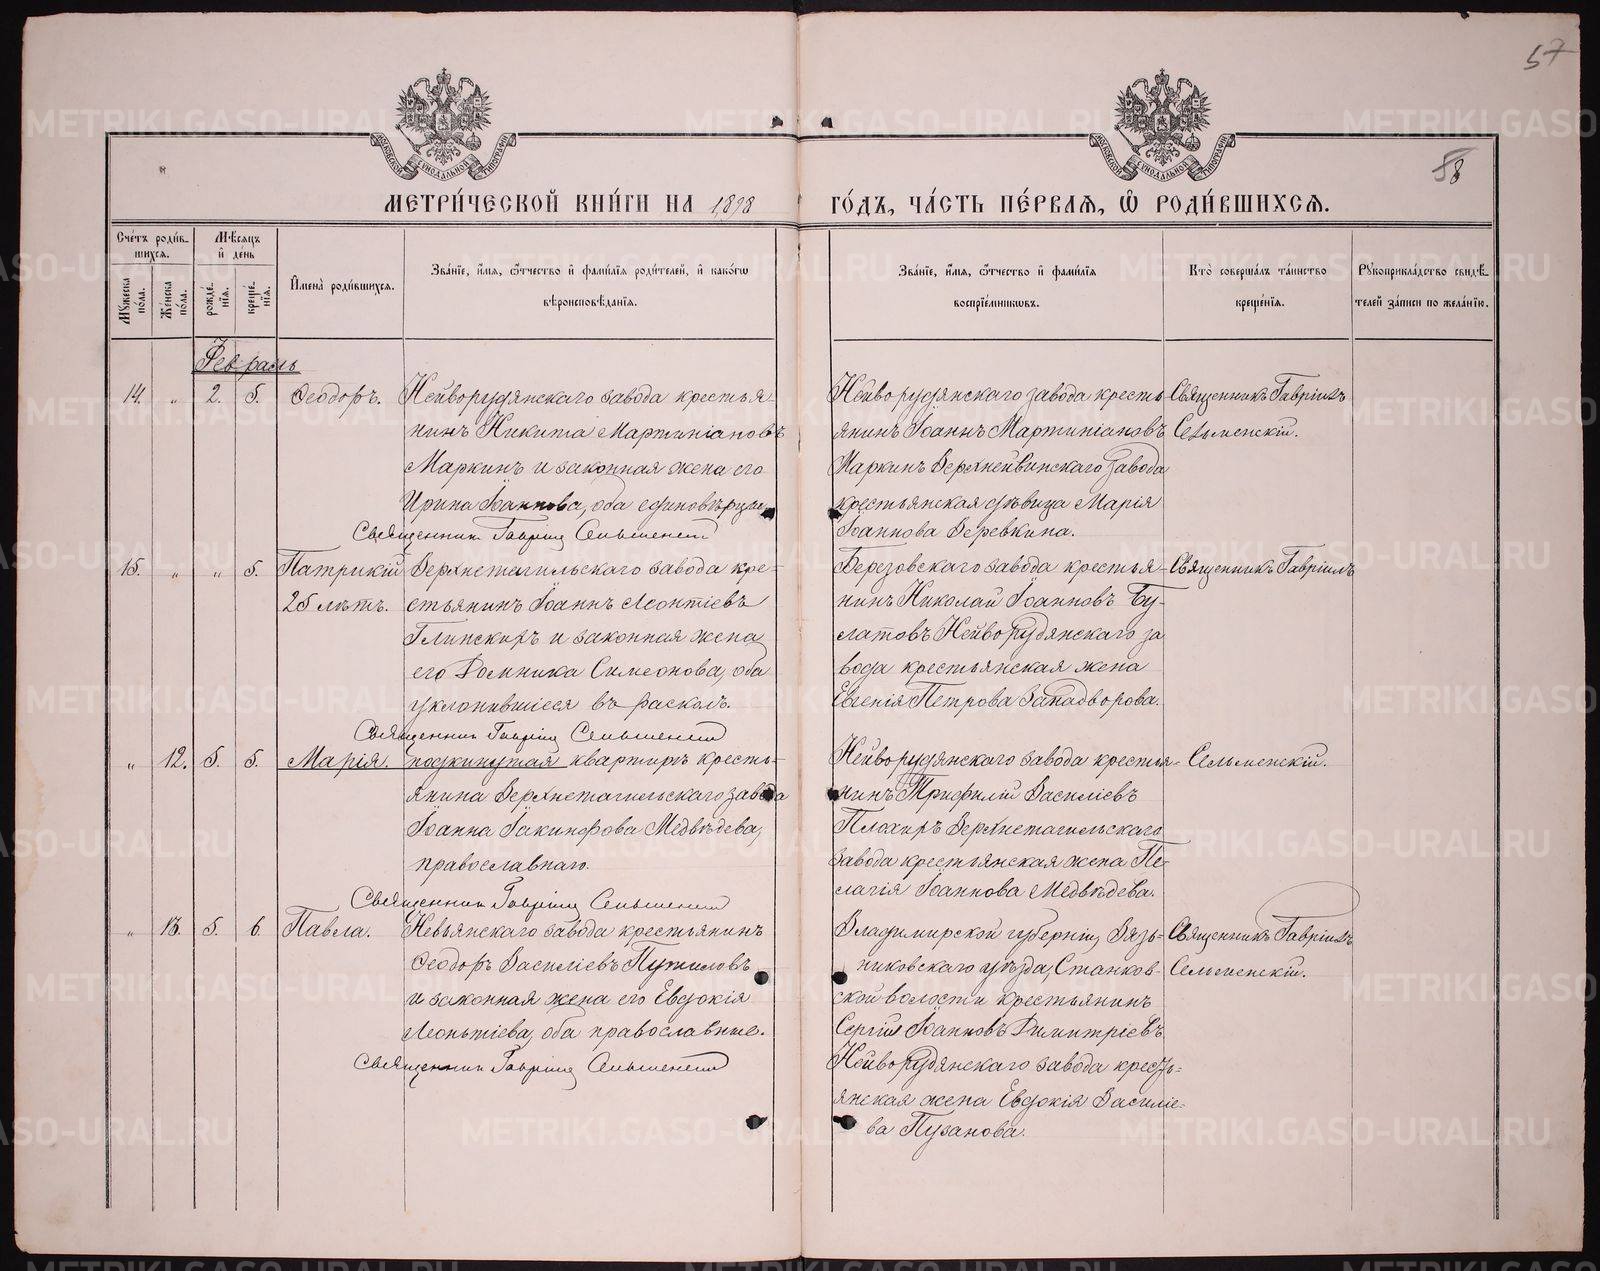 57
58
МОСКОВСКОЙ СѴНОДАЛЬНОЙ ТИПОГРАФІИ
МОСКОВСКОЙ СѴНОДАЛЬНОЙ ТИПОГРАФІИ
МЕТРИ́ЧЕСКОЙ КНИ́ГИ НА 1898 ГО́ДЪ, ЧА́СТЬ ПЕ́РВАЯ, Ѡ РОДИ́ВШИХСЯ.
Сче́тъ роди́в-
шихся.
Мѣ́сяцъ
и҆ де́нь
Мꙋ́жеска по́ла.
Же́нска по́ла.
рожде́-
нїя.
креще́-
нїя.
И҆мена̀ роди́вшихся.
Зва́нїе, и҆́мя, ѻ҆́тчество и҆ фами́лїя роди́телей, и҆ како́гѡ
вѣроисповѣ́данїя.
Зва́нїе, и҆́мя, ѻ҆́тчество и҆ фами́лїя
воспрїе́мниковъ.
Кто̀ соверша́лъ та́инство
креще́нїя.
Рꙋкоприкла́дство свидѣ́-
телей за́писи по жела́нїю.
Февраль
14. „ 2. 5. Ѳеодоръ. Нейворудянскаго завода крестья-
нинъ Никита Мартиніановъ
Маркинъ и законная жена его
Ирина Іоаннова, оба единовѣрцы.
Священник Гавриил Сельменский
Нейворудянскаго завода кресть
янинъ Іоаннъ Мартиніановъ
Маркинъ Верхнейвинскаго завода
крестьянская дѣвица Марія
Іоаннова Веревкина.
Священникъ Гавріилъ
Сельменскій.
15. „ „ 5. Патрикій
25 лѣтъ.
Верхнетагильскаго завода кре-
стьянинъ Іоаннъ Леонтіевъ
Глинскихъ и законная жена
его Домника Симеонова, оба
уклонившіеся въ расколъ.
Священник Гавриил Сельменский
Березовскаго завода крестья-
нинъ Николай Іоанновъ Бу-
латовъ Нейворудянскаго за
вода крестьянская жена
Евгенія Петрова Западворова.
Священникъ Гавріилъ
„ 12. 5. 5. Марія. подкинутая квартирѣ кресть-
янина Верхнетагильскаго завода
Іоанна Іакинфова Медвѣдева,
православнаго.
Священник Гавриил Сельменский
Нейворудянскаго завода крестья-
нинъ Трифилій Василіевъ
Плохихъ Верхнетагильскаго
завода крестьянская жена Пе-
лагія Іоаннова Медвѣдева.
Сельменскій.
„ 13. 5. 6. Павла. Невьянскаго завода крестьянинъ
Ѳеодоръ Василіевъ Путиловъ
и законная жена его Евдокія
Леонтіева, оба православные.
Священник Гавриил Сельменский
Владимирской губерніи, Вязь-
никовскаго уѣзда, Станков-
ской волости крестьянинъ
Сергій Іоанновъ Димитріевъ
Нейворудянскаго завода кресть-
янская жена Евдокія Василіе-
ва Пузанова.
Священникъ Гавріилъ
Сельменскій.
METRIKI.GASO-URAL.RU